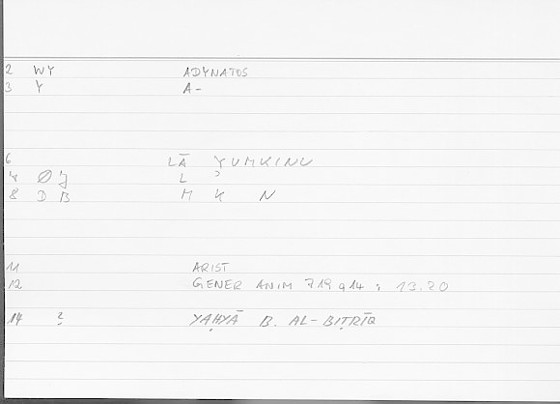 2 WY ADYNATOS
3 Y A-
6 LĀ YUMKINU
4 Ø'J L ʾ
8 D B M K N
11 ARIST
12 GENER ANIM 719a14 ; 13.20
14 ? YAḤYĀ B. AL-BIṬRĪQ